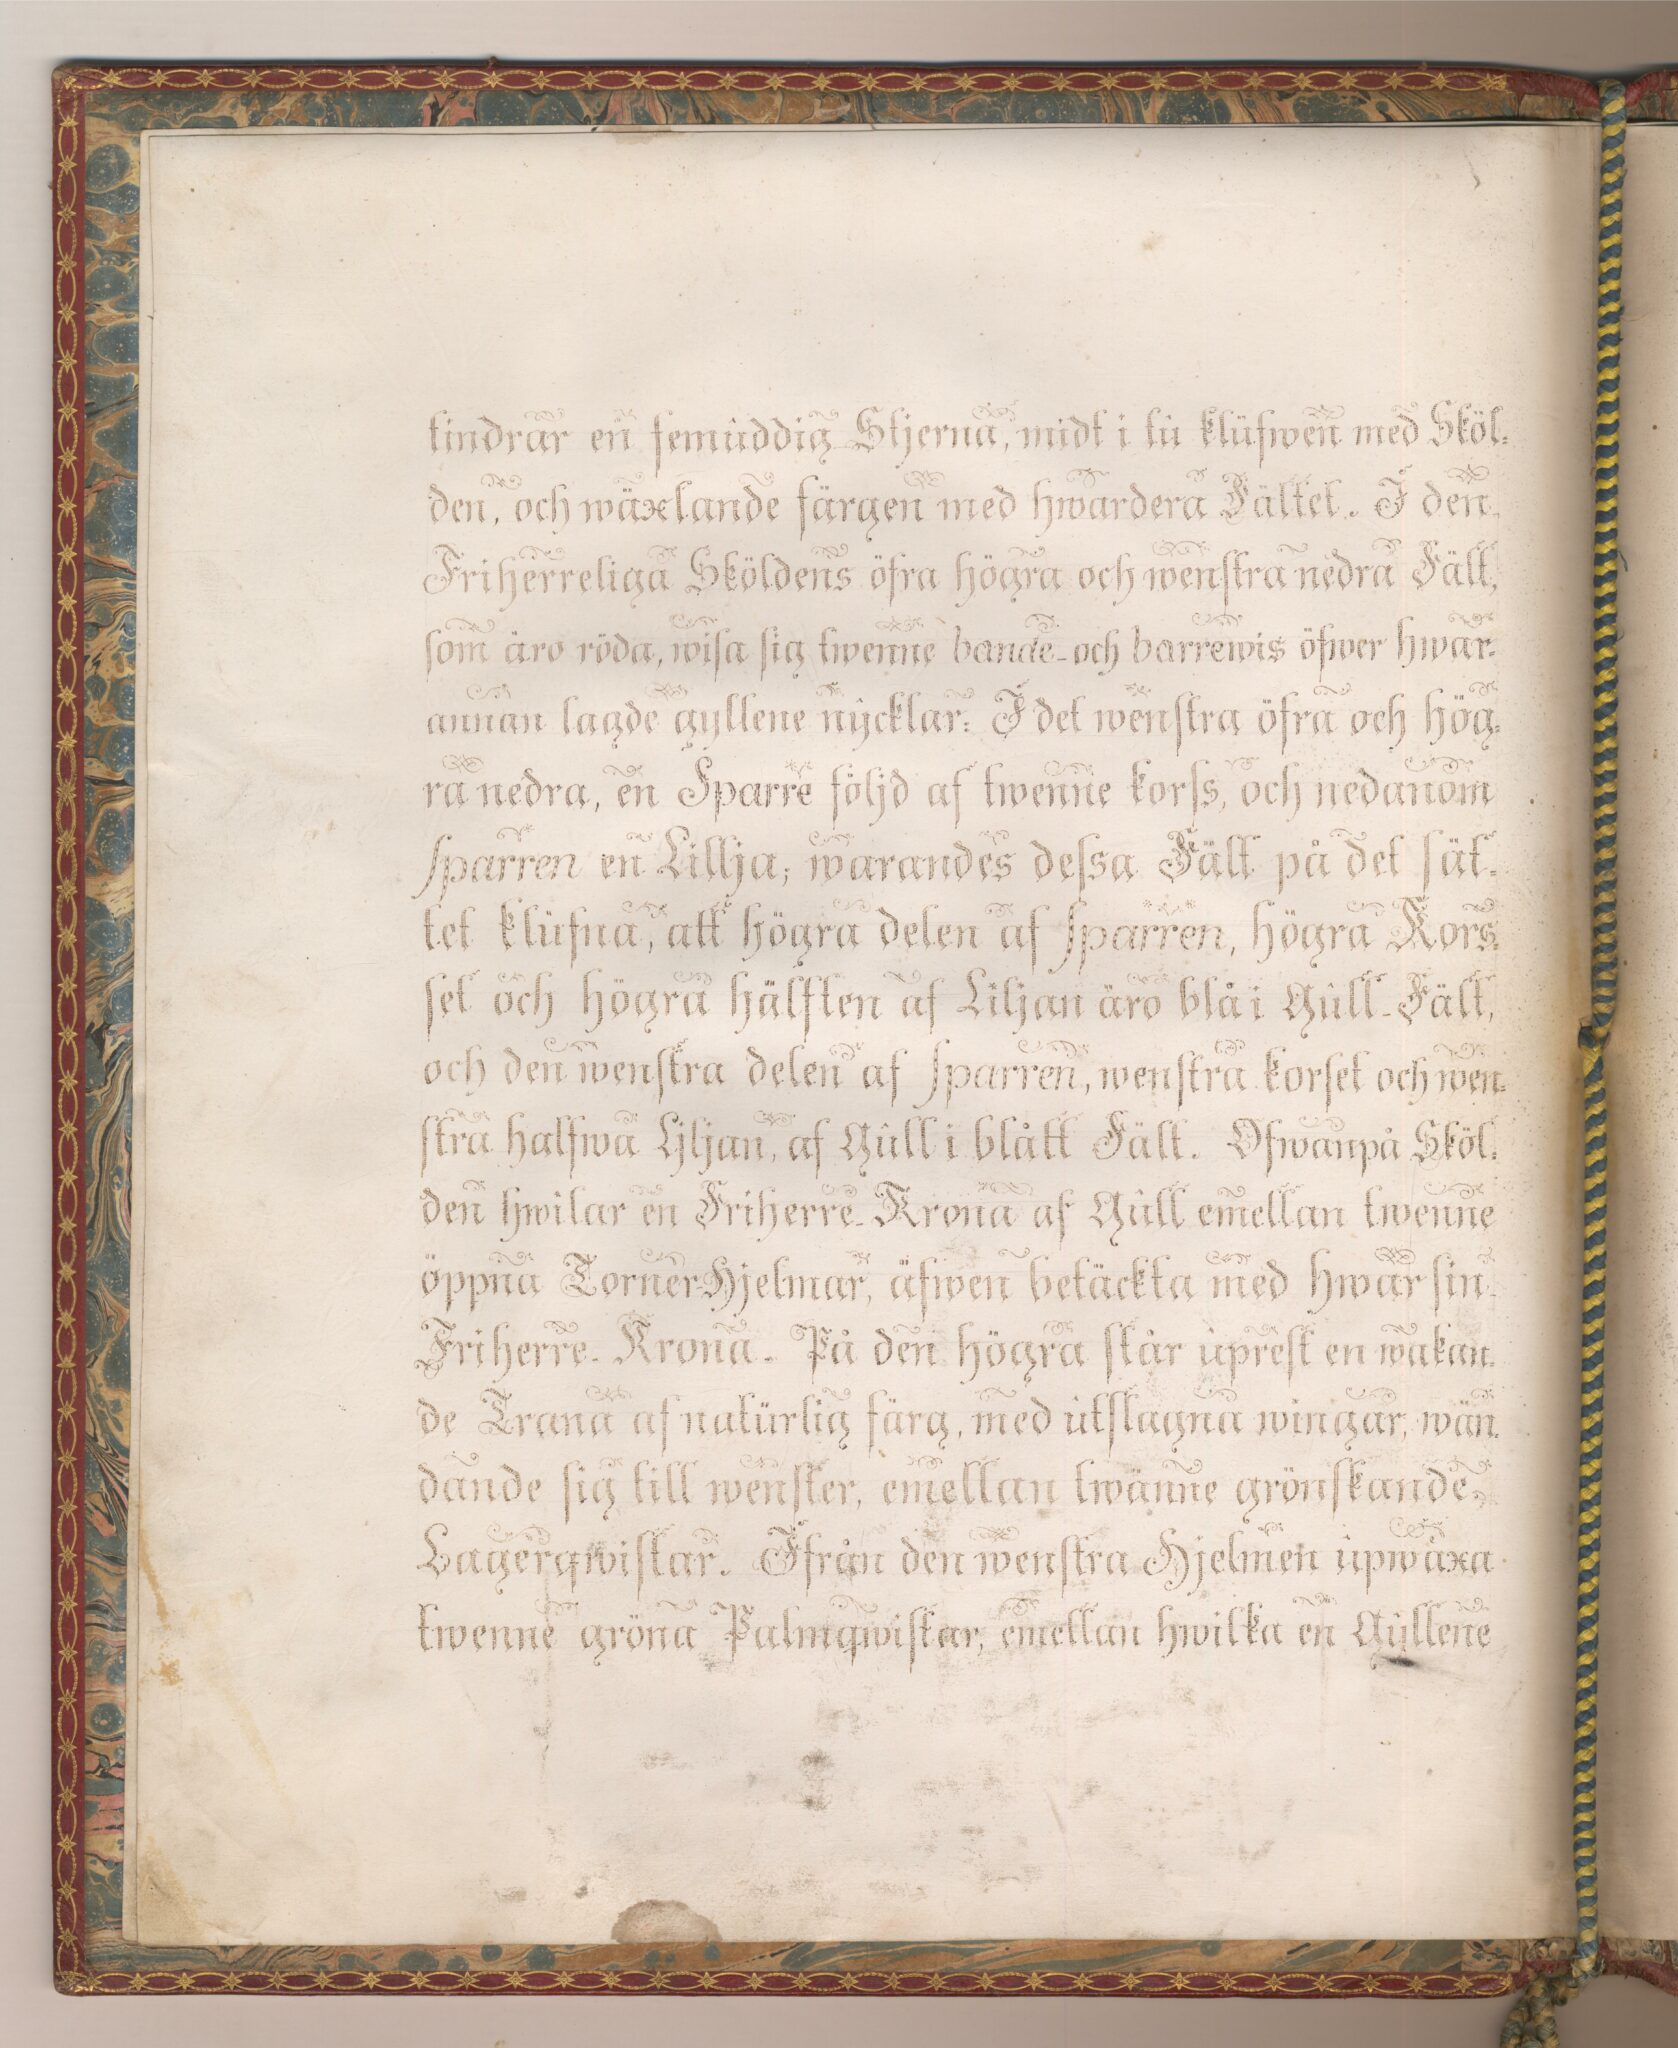 tindrar en femuddig Stjerna, midt i tu klüfwen med Sköl-
den, och wäxlande färgen med hwardera Fältet. I den
Friherreliga Sköldens öfra högra och wenstra nedra Fält,
som äro röda, wisa sig twenne bande- och barrewis öfwer hwar-
annan lagde gyllene nycklar: I det wenstra öfra och hög-
ra nedra, en Sparre följd af twenne korss, och nedanom
sparren en Lillja; warandes dessa Fält på det sät-
tet klüfna, att högra delen af sparren, högra Kors-
set och högra hälften af Liljan äro blå i Gull-Fält,
och den wenstra delen af sparren, wenstra korset och wen-
stra halfwa Liljan, af Gull i blått Fält. Ofwanpå Sköl-
den hwilar en Friherre-Krona af Gull emellan twenne
öppna Torner-Hjelmar, äfwen betäckta med hwar sin
Friherre-Krona. På den högra står uprest en wakan-
de Trana af natürlig färg, med utslagna wingar, wän-
dande sig till wenster, emellan twänne grönskande
Lagerqwistar. Ifrån den wenstra Hjelmen upwäxa
twenne gröna Palmqwistar, emellan hwilka en Gyllene